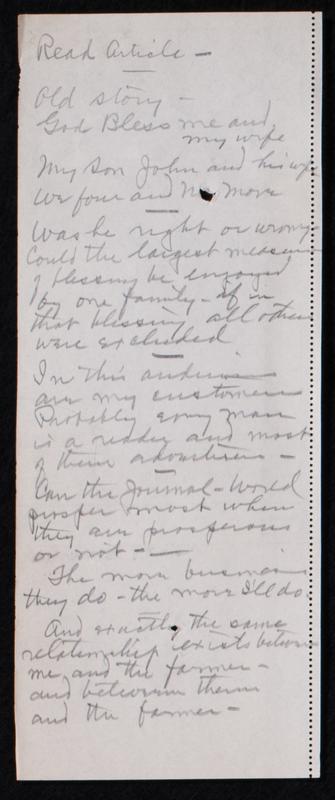 Read Article —
Old story —
God Bless me and
my wife
My son John and his wife
We four and no more
Was he right or wrong
Could the largest measure
of blessing be enjoyed
by one family — if in
that blessing all others
were excluded
In this audience
are my customers
Probably every man
is a reader and most
of them advertisers —
Can the Journal-World
prosper most when
they are prosperous
or not —
The more business
they do — the more I'll do.
And exactly the same
relationship exists between
me and the farmer —
and between them
and the farmer —